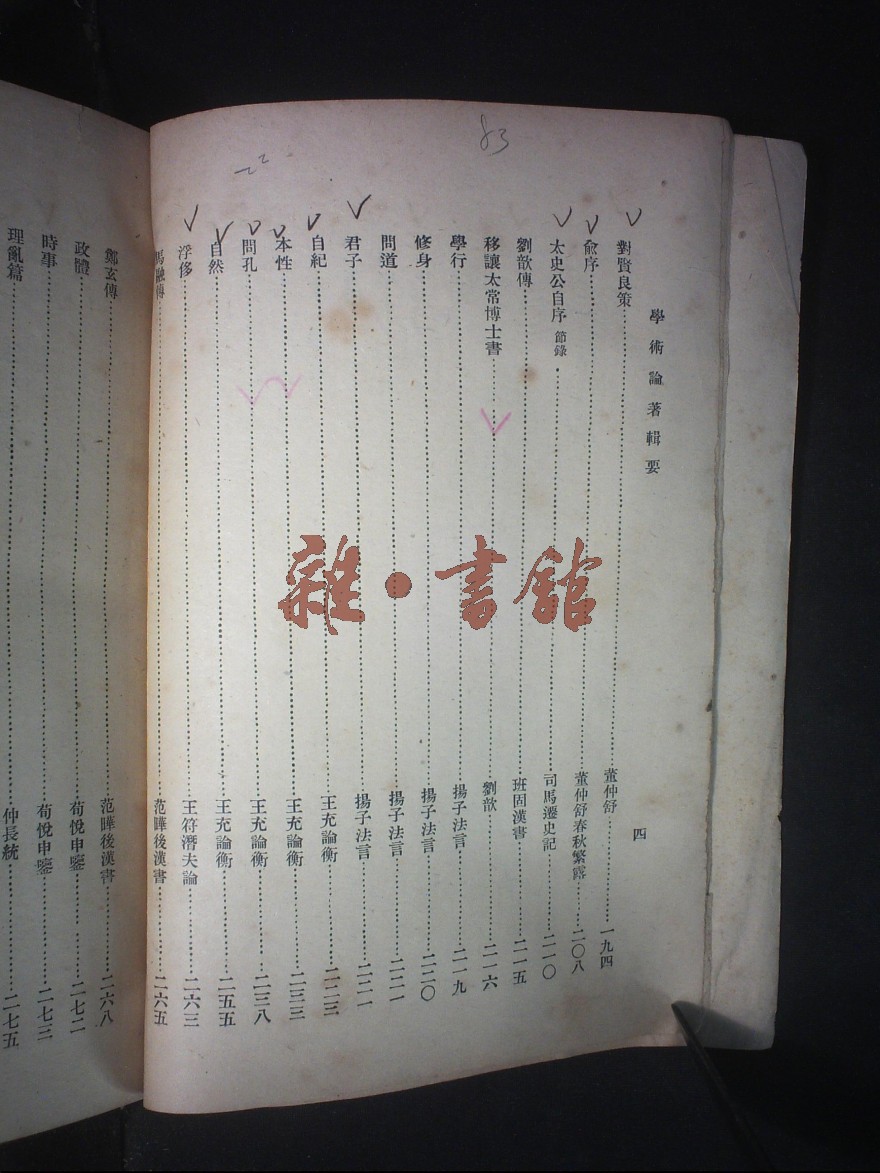 83
學術論著輯要
四
對賢良策 董仲舒 一九四
俞序 董仲舒春秋繁露 二〇八
太史公自序 節錄 司馬遷史記 二一〇
劉歆傳 班固漢書 二一五
移讓太常博士書 劉歆 二一六
學行 揚子法言 二一九
修身 揚子法言 二二〇
問道 揚子法言 二二一
君子 揚子法言 二二一
自紀 王充論衡 二二三
本性 王充論衡 二三三
問孔 王充論衡 二三八
自然 王充論衡 二五五
浮侈 王符潛夫論 二六三
馬融傳 范曄後漢書 二六五
鄭玄傳 范曄後漢書 二六八
政體 荀悅申鑒 二七二
時事 荀悅申鑒 二七三
理亂篇 仲長統 二七五
雜·書館